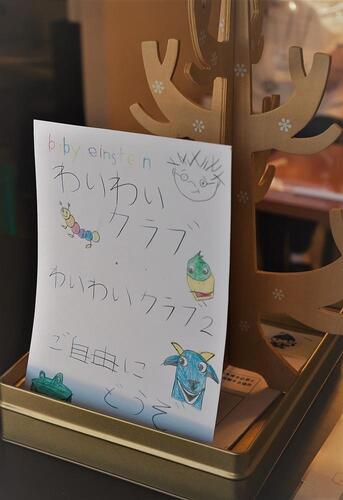 baby einstein
わいわい
クラブ
わいわいクラブ2
ご自由に
どうぞ